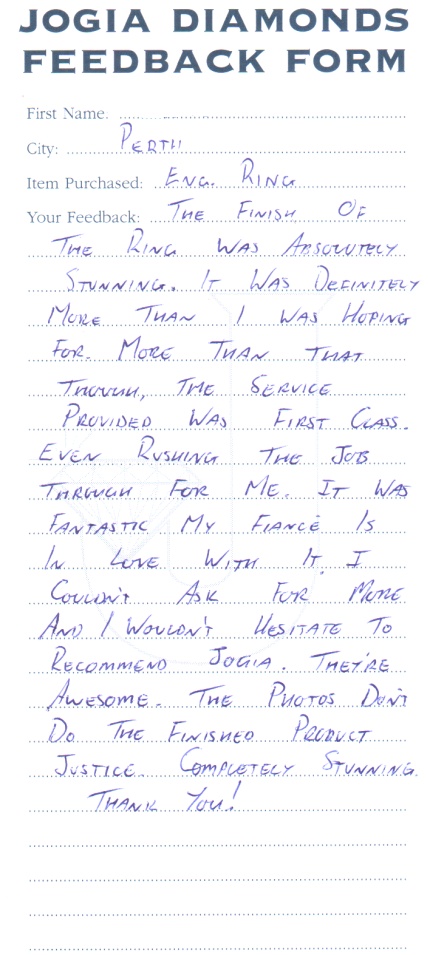 JOGIA DIAMONDS
FEEDBACK FORM
First Name.
City: PERTH
Item Purchased: ENG. RING
Your Feedback: THE FINISH OF
THE RING WAS ABSOLUTELY
STUNNING. IT WAS DEFINITELY
MORE THAN I WAS HOPING
FOR. MORE THAN THAT
THOUGH, THE SERVICE
PROVIDED WAS FIRST CLASS.
EVEN RUSHING THE JOB
THROUGH FOR ME. IT WAS
FANTASTIC MY FIANCÈ IS
IN LOVE WITH IT. I
COULDN'T ASK FOR MORE
AND I WOULDN'T HESITATE TO
RECOMMEND JOGIA. THEY'RE
AWESOME. THE PHOTOS DON'T
DO THE FINISHED PRODUCT
JUSTICE. COMPLETELY STUNNING.
THANK YOU!